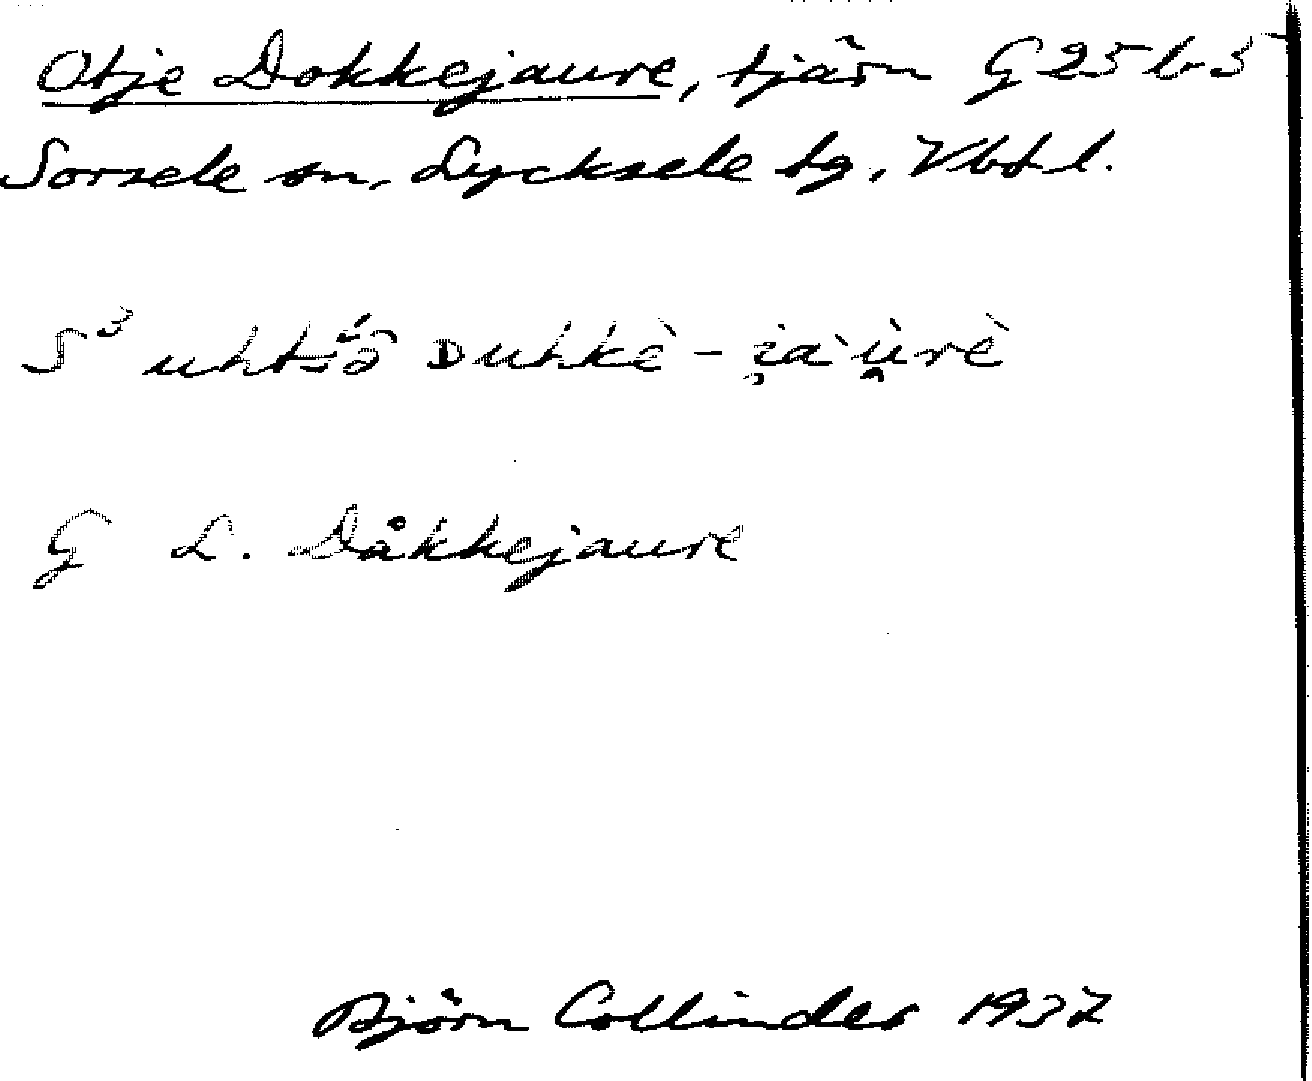 Otje Dokkejaure, tjärn G 25 b 5
Sorsele sn, Lycksele tg, Vbtl.
S³ Duhkè-i̯àu̯rè
G L. Dåkkejaure
Björn Collinder 1937